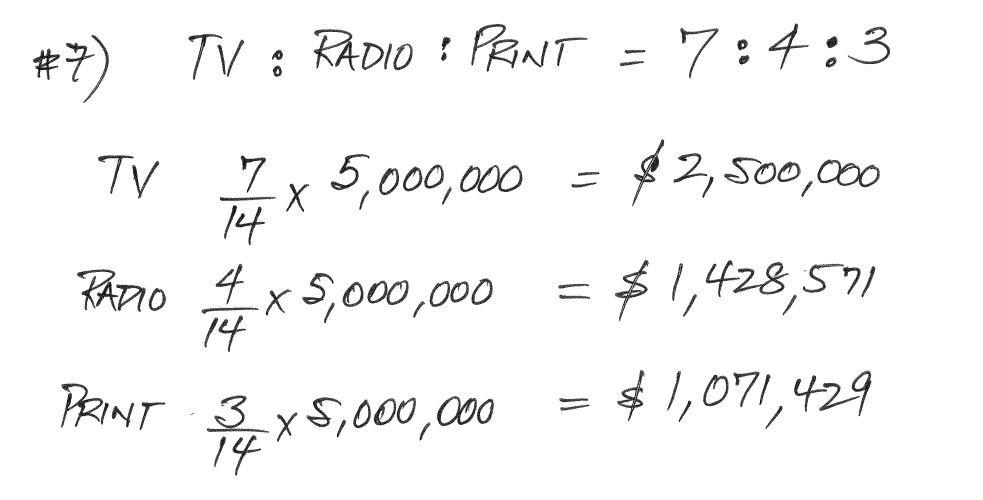 #7) TV : RADIO : PRINT = 7 : 4 : 3
TV 7/14 x 5,000,000 = $2,500,000
RADIO 4/14 x 5,000,000 = $1,428,571
PRINT 3/14 x 5,000,000 = $1,071,429